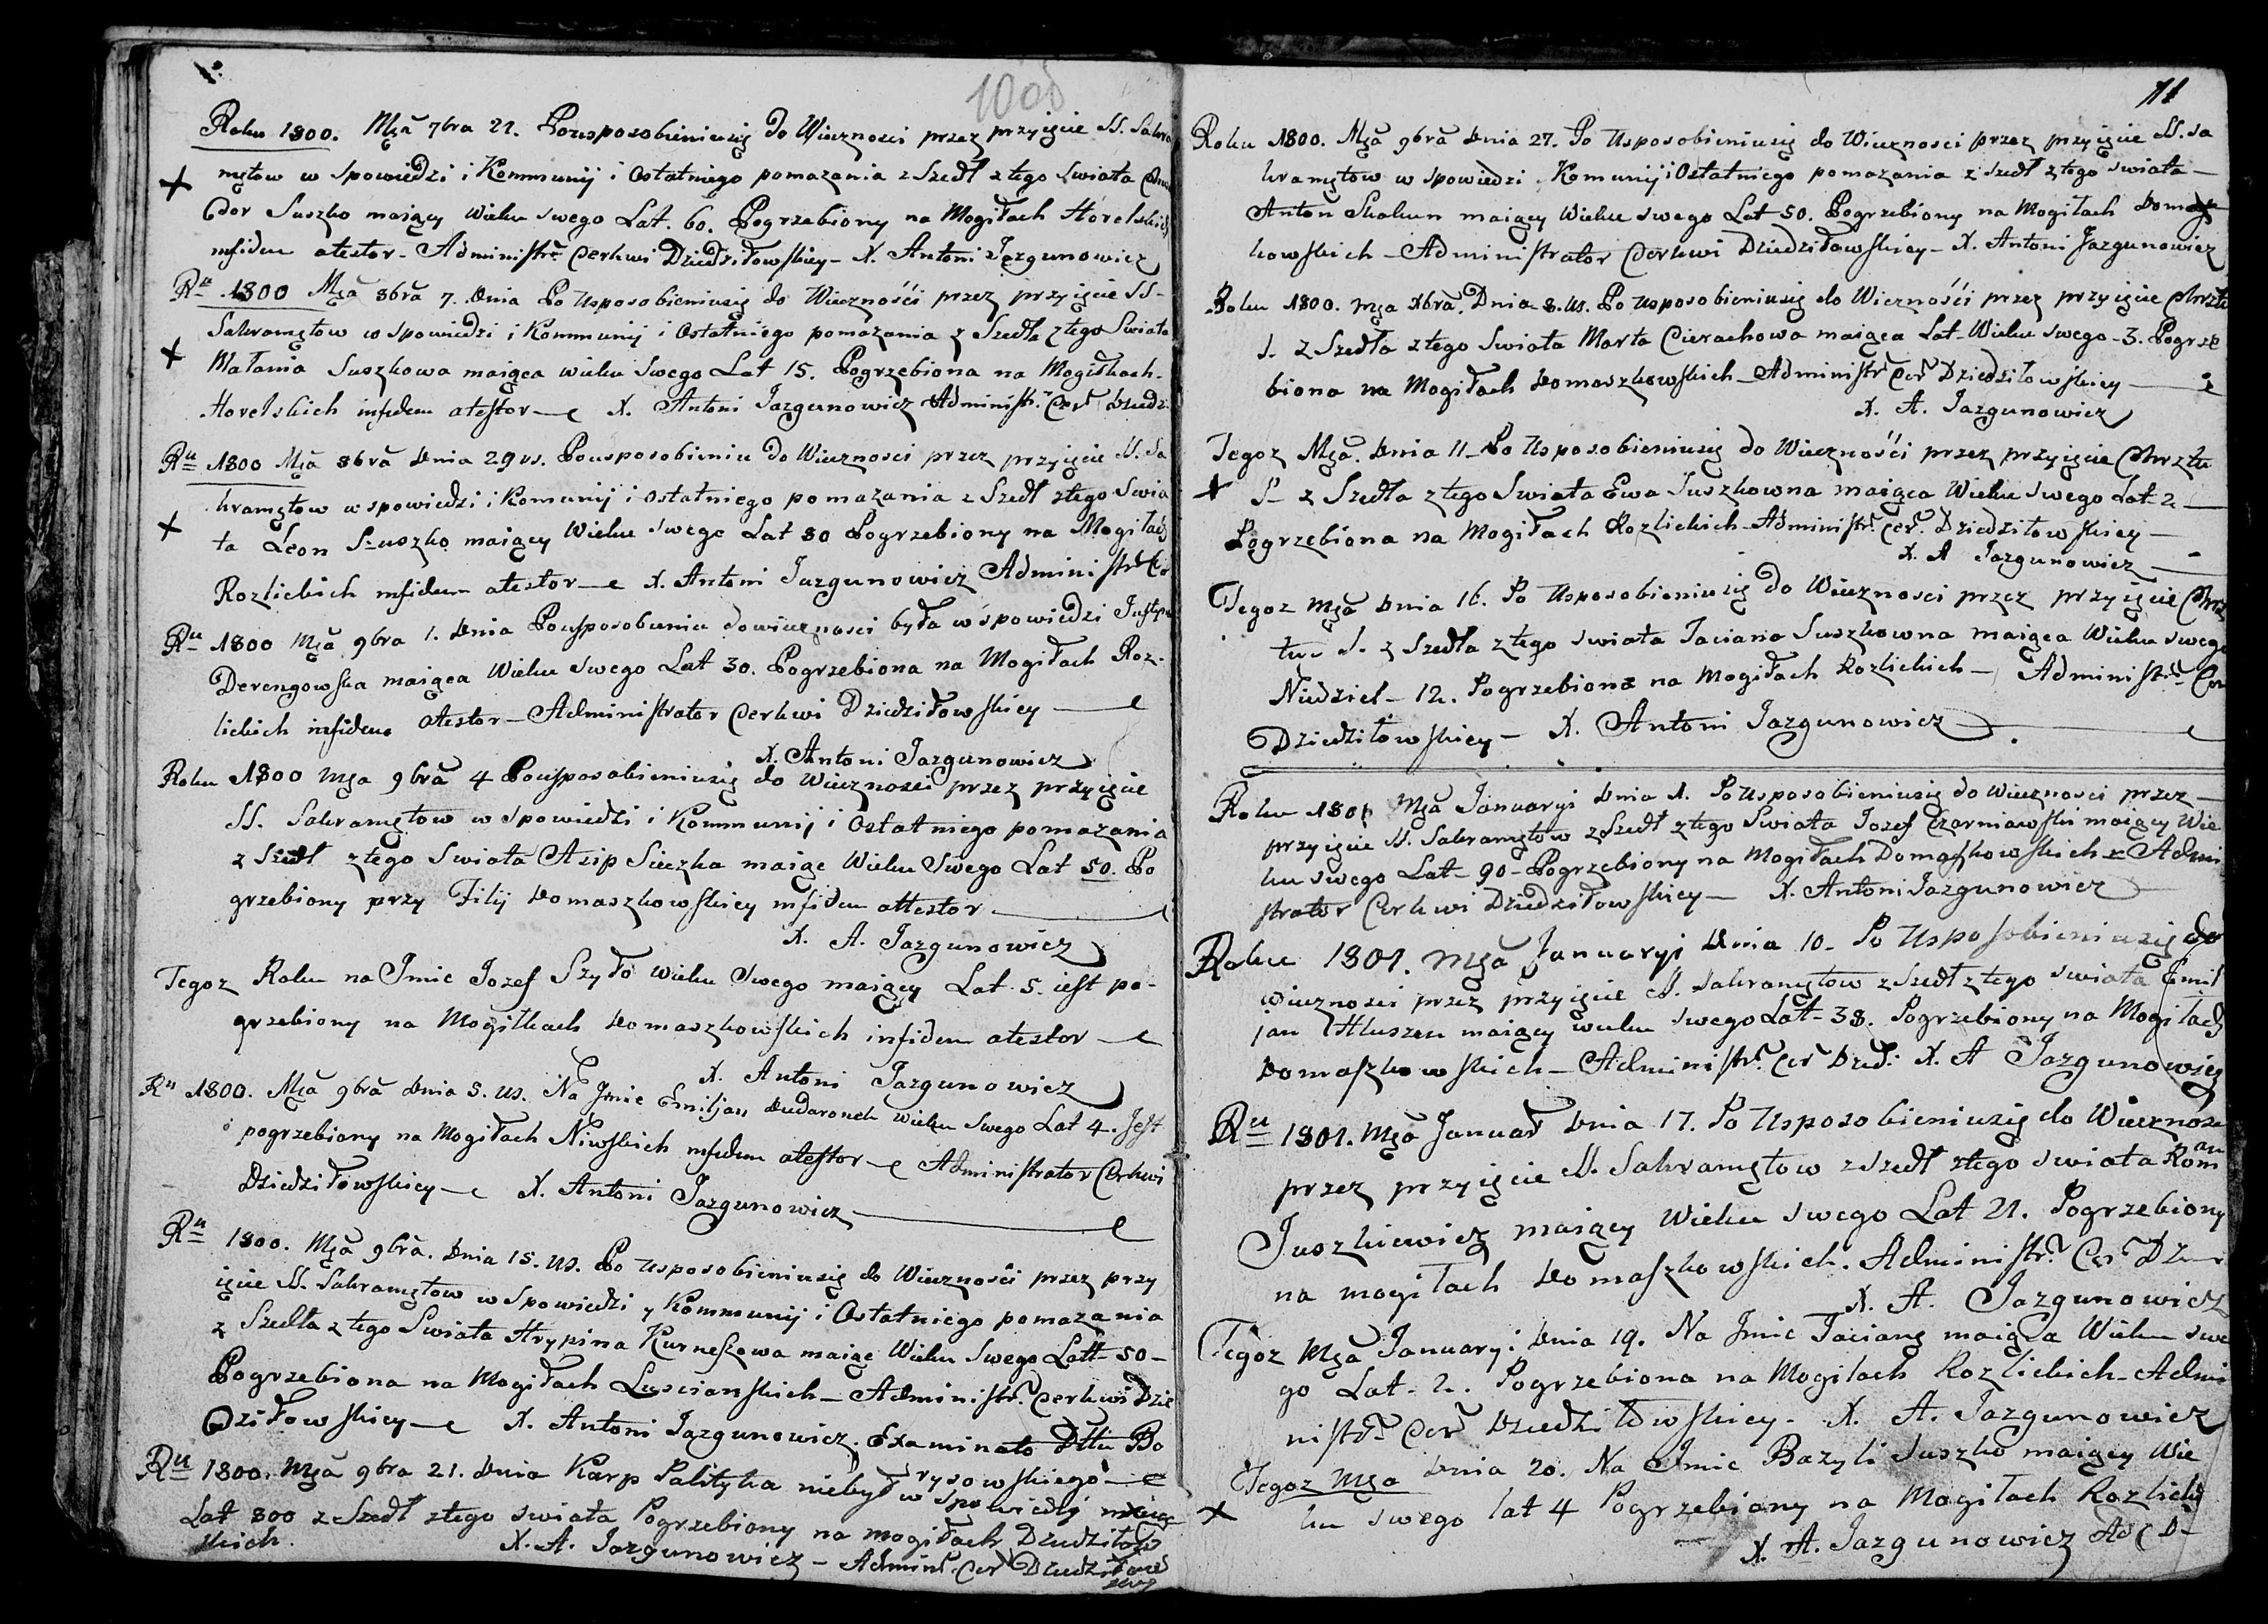 1006
Roku 1800. Mça 7bra 21. Pousposobieniusię do Wiecznosci przez przyięcie SS. Sakra
mętow w Spowiedzi i Kommunij i Ostatniego pomazania z Szedł z tego Swiata
Suszko maiący Wieku swego Lat. 60. Pogrzebiony na Mogiłach Horelskich
infidem atestor - Administr. Cerkwi Dziedziłowskiey - X. Antoni Jazgunowicz
Ru 1800 Mça 8bra 7. Dnia Po Usposobieniusię do Wiecznośći przez przyięcie SS -
Sakramętow w Spowiedzi i Kommunij i Ostatniego pomazania z Szedła z tego Swiata
Małania Suszkowa maiąca wieku Swego Lat 15. Pogrzebiona na Mogiłkach -
Horelskich infidem atestor - X. Antoni Jazgunowicz Administr. Cer Dziedz:
Ru 1800 Mça 8bra Dnia 29 vs. Pousposobieniu do Wiecznosci przez przyięcie SS. Sa
kramętow w spowiedzi i Komunij i ostatniego pomazania z Szedł z tego Swia
ta Leon Suszko maiący Wieku swego Lat 80 Pogrzebiony na Mogiłach
Rozlickich infidem atestor - X. Antoni Jazgunowicz Administr Cer
Ru 1800 Mça 9bra 1. Dnia Pousposobieniu do wiecznosci była w spowiedzi
Derengowska maiąca Wieku Swego Lat 30. Pogrzebiona na Mogiłach Roz-
lickich infidem atestor - Administrator Cerkwi Dziedziłowskiey -
X. Antoni Jazgunowicz
Roku 1800 Mça 9bra 4 Pousposobieniusię do Wiecznosci przez przyięcie
SS. Sakramętow w Spowiedzi i Kommunij i Ostatniego pomazania
z Szedł z tego Swiata Asip Sieczka maiąc Wieku Swego Lat 50. Po
grzebiony przy Filij Domaszkowskiey infidem attestor
X. A. Jazgunowicz
Tegoz Roku na Jmie Jozef Szyło wieku Swego maiący Lat. 5. iest po-
grzebiony na Mogiłkach Domaszkowskich infidem atestor
X. Antoni Jazgunowicz
Ru 1800. Mça 9bra Dnia 5. vs. Na Jmie Emiljan Dudaronek wieku Swego Lat 4. Jest
pogrzebiony na Mogiłach Niwskich infidem atestor - Administrator Cerkwi
Dziedziłowskiey - X. Antoni Jazgunowicz
Ru 1800. Mça 9bra. Dnia 15. vs. Po Usposobieniusię do Wiecznośći przez przy
ięcie SS. Sakramętow w Spowiedzi y Kommunij i Ostatniego pomazania
z Szedła z tego Swiata Hrypina Kurneszowa maiąc Wieku Swego Latt 50 -
Pogrzebiona na Mogiłach Luscianskich - Administr. Cerkwi Dzie
dziłowskiey - X. Antoni Jazgunowicz. Examinato Dttu Bo
rysowskiego
Ru 1800. Mça 9bra 21. Dnia Karp Palityka niebył w spowiedzi maiąc
Lat 800 z Szedł z tego swiata Pogrzebiony na mogiłach Dziedziłow
skich. X. A. Jazgunowicz - Admint. Cer Dziedziłows
kiey
11
Roku 1800. Mça 9bra Dnia 27. Po Usposobieniusię do Wiecznosci przez przyięcie SS. Sa
kramętow w spowiedzi Komunij i Ostatniego pomazania z szedł z tego swiata -
Anton Skakun maiący Wieku swego Lat 50. Pogrzebiony na Mogiłach Domasz
kowskich - Administrator Cerkwi Dziedziłowskiey - X. Antoni Jazgunowicz
Roku 1800. Mça Xbra. Dnia 8. vs. Po usposobieniusię do Wieznośći przez przyięcie Chrztu
S. z Szedła z tego Swiata Marta Cierachowa maiąca Lat Wieku swego - 3. Pogrze
biona na Mogiłach Domaszkowskich - Administr Cer Dziedziłowskiey -
X. A. Jazgunowicz
Tegoz Mça. Dnia 11 - Po Usposobieniusię do Wiecznośći przez przyięcie Chrztu
S - z Szedła z tego Swiata Ewa Suszkowna maiąca Wieku swego Lat - 2 -
Pogrzebiona na Mogiłach Rozlickich - Administr. Cer. Dziedziłowskiey -
X. A Jazgunowicz
Tegoz Mça Dnia 16. Po Usposobieniusię do Wiecznosci przez przyięcie Chrz
tu S. z Szedła z tego swiata Taciana Suszkowna maiąca Wieku swego
Niedziel - 12. Pogrzebiona na Mogiłach Rozlickich - Administr Cer
Dziedziłowskiey - X. Antoni Jazgunowicz
Roku 1801 Mça Januaryi Dnia 1. Po Usposobieniusię do Wiecznosci przez -
przyięcie SS. Sakramętow z Szedł z tego Swiata Jozef Czarniawski maiący Wie
ku swego Lat - 90 - Pogrzebiony na Mogiłach Domaszkowskich - Admini
strator Cerkwi Dziedziłowskiey - X. Antoni Jazgunowicz
Roku 1801. Mça Januaryi Dnia 10 - Po Usposobieniusię do
wiecznosci przez przyięcie SS. Sakramętow z szedł z tego swiata Emil
jan Hluszen maiący wieku swego Lat - 38. Pogrzebiony na Mogiłach
Domaszkowskich - Administr. Cer Dzied: X. A Jazgunowicz
Ru 1801. Mça Januar Dnia 17. Po Usposobieniusię do Wiecznosci
przez przyięcie SS. Sakramętow z Szedł z tego swiata Roman
Juszkiewicz maiący Wieku swego Lat 21. Pogrzebiony
na mogiłach Domaszkowskich. Administr. Cer Dz
X. A. Jazgunowicz
Tegoz Mça Januaryi Dnia 19. Na Jmie Taciana maiąca Wieku swe
go Lat - 2. Pogrzebiona na Mogiłach Rozlickich - Admi
nistr. Cer Dziedziłowskiey - X. A. Jazgunowicz
Tegoz Mça Dnia 20. Na Jmie Bazyli Suszko maiący Wie
ku swego lat 4 Pogrzebiony na Mogiłach Rozlickich
X. A. Jazgunowicz Ad C D -